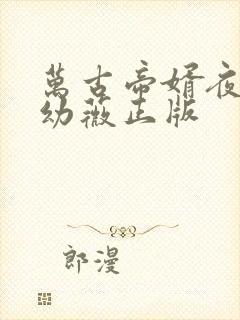 萬古帝婿夜
幼薇正版
郎漫